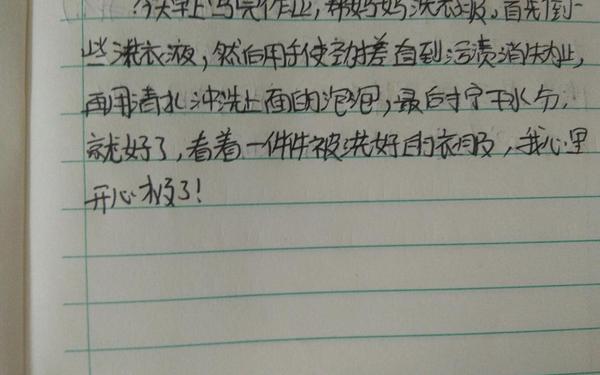 今天早上写完作业，帮妈妈洗衣服，首先倒一
些洗衣液，然后用手使劲搓直到污渍消失为止，
再用清水冲洗上面的泡泡，最后拧干水分，
就好了，看着一件件被洗好的衣服，我心里
开心极了！